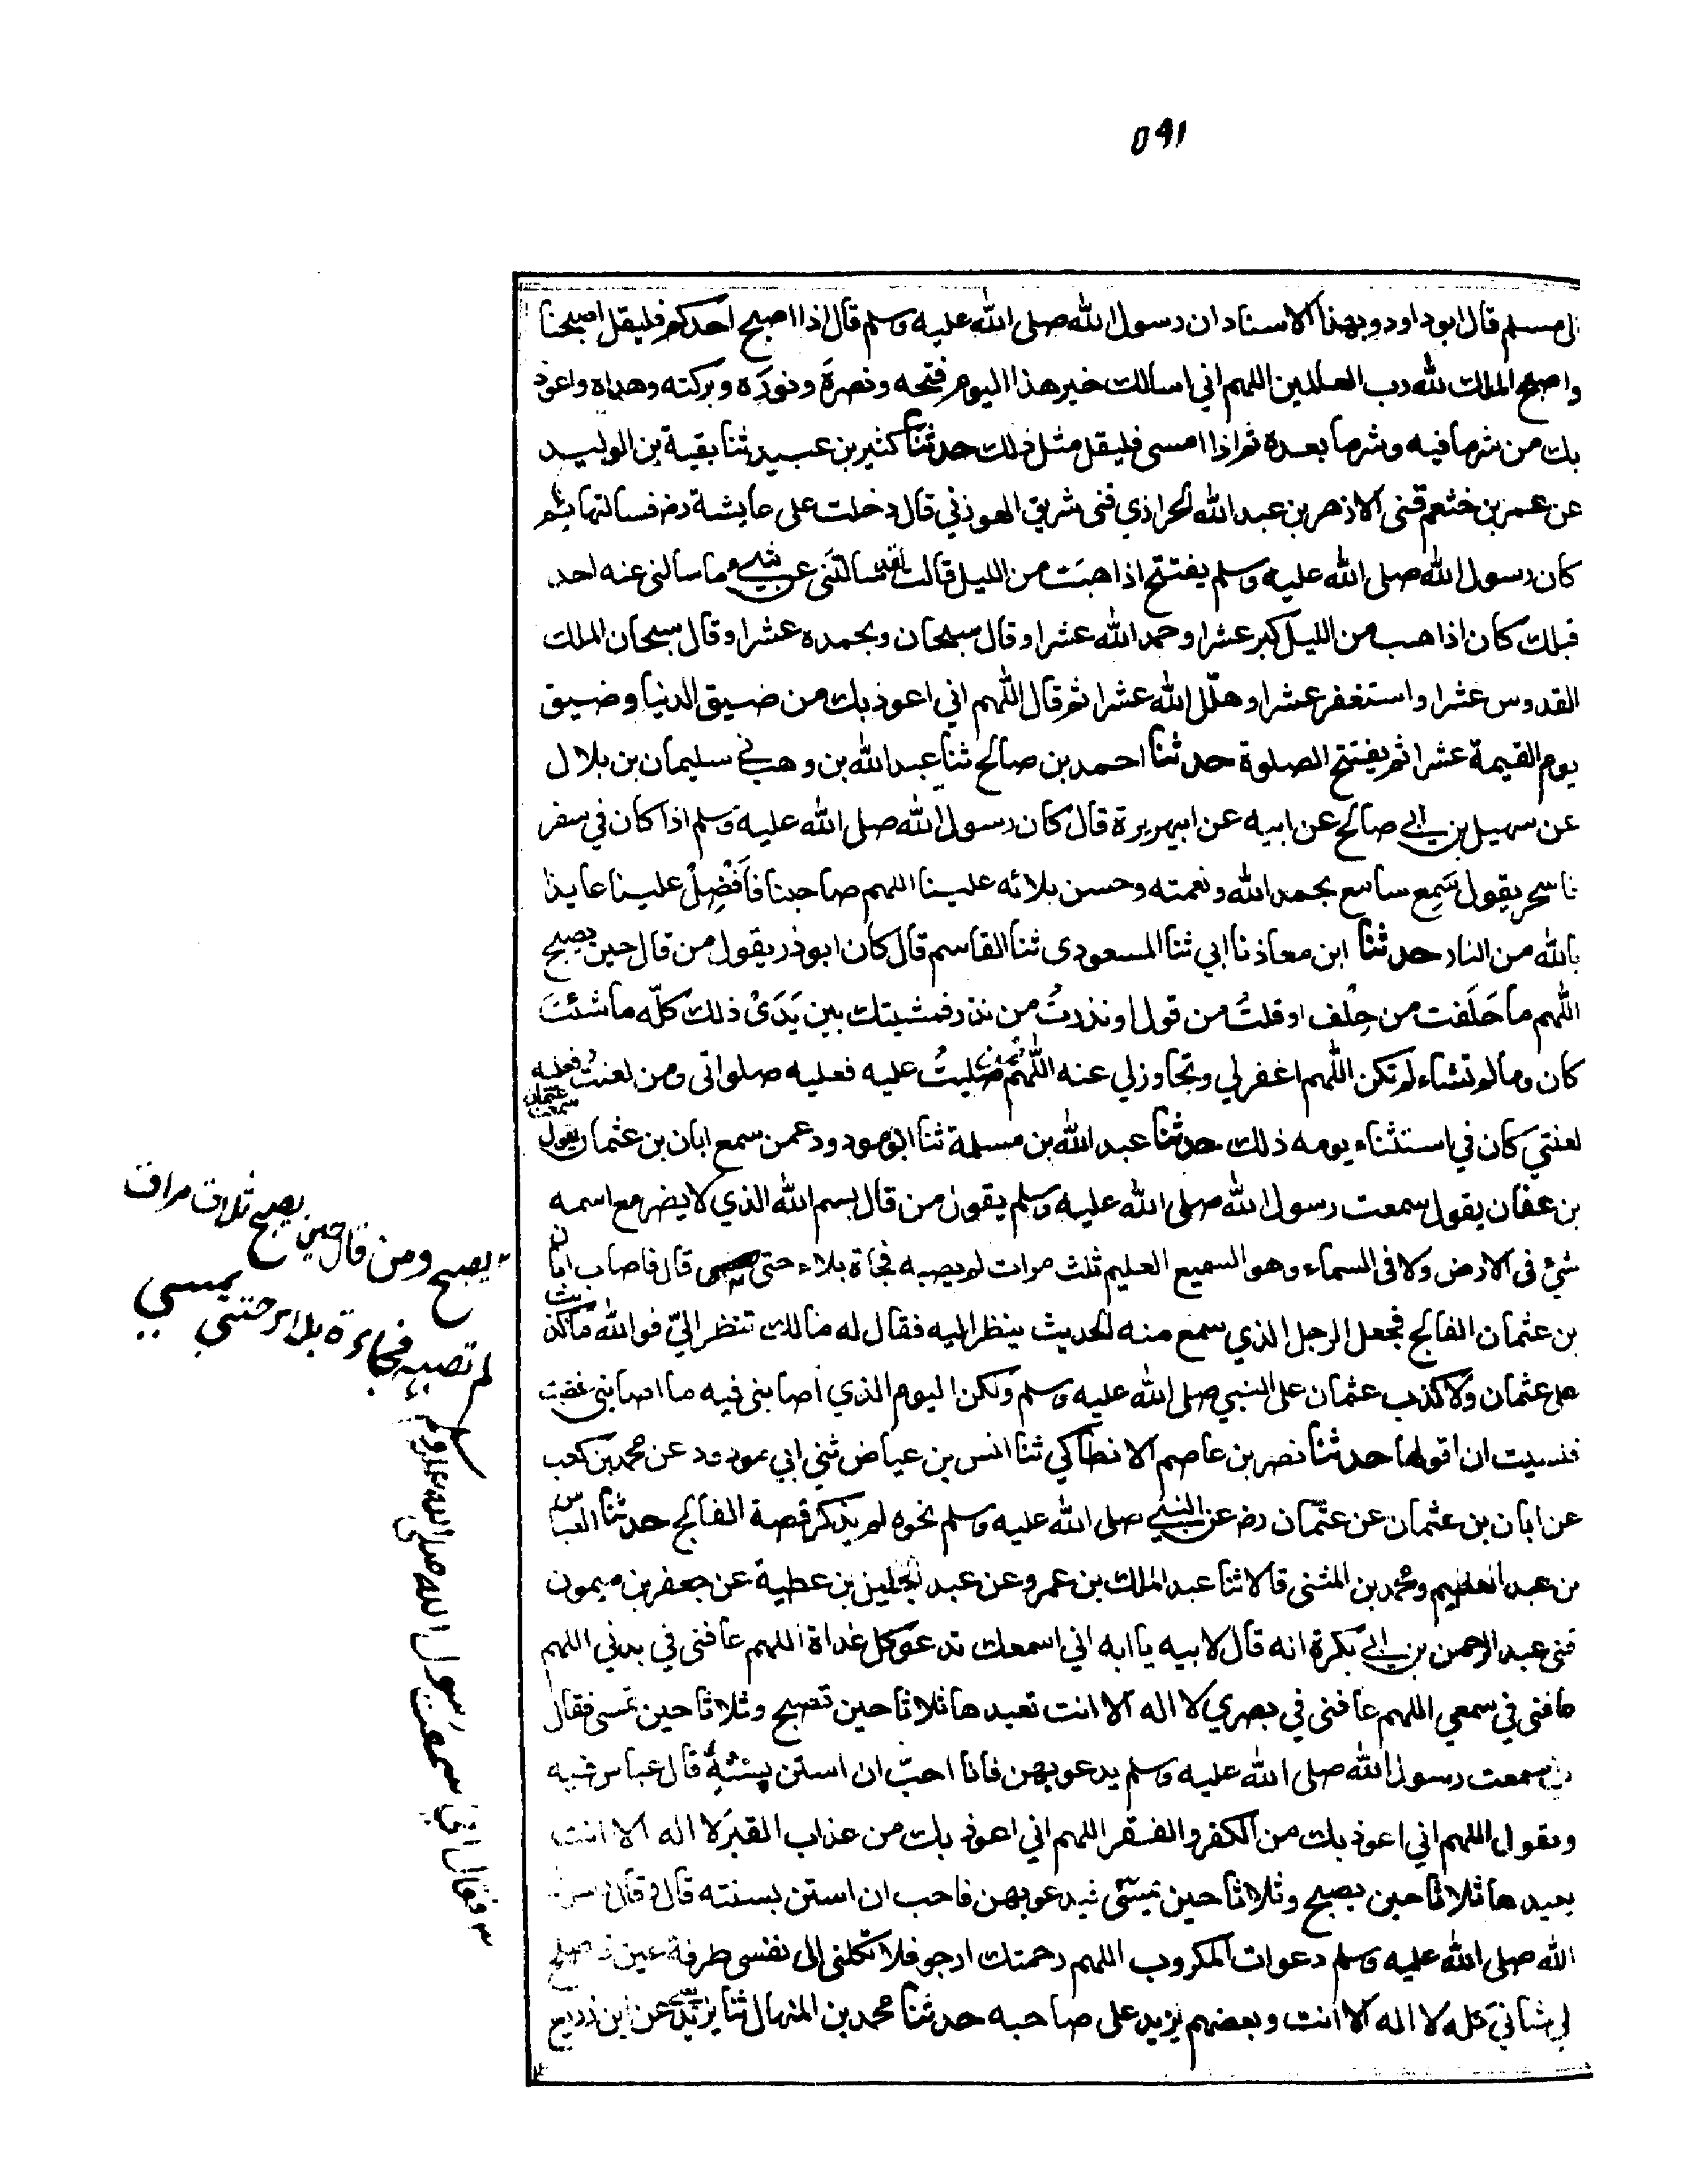 ٥٩١
بي مسلم قال ابو داود وبهذا الاسناد ان رسول الله صلى الله عليه وسلم قال اذا اصبح احدكم فليقل اصبحنا
واصبح الملك لله رب العلمين اللهم اني اسالك خير هذا اليوم فتحه ونصرَه ونورَه وبركته وهداه واعوذ
بك من شر ما فيه وشر ما بعده ثم اذا امسى فليقل مثل ذلك حدثنا كثير بن عبيد ثنا بقية بن الوليد
عن عمر بن خثعم قثنى الازهر بن عبد الله الحرازي قثنى شريق الهوزني قال دخلت على عايشة رض فسالتها بم
كان رسول الله صلى الله عليه وسلم يفتتح اذا هبَّ من الليل قالت لقد سالتَنى عن شيء ما سالنى عنه احد
قبلك كان اذا هب من الليل كبر عشرا وحمد الله عشرا وقال سبحان وبحمده عشرا وقال سبحان الملك
القدوس عشرا واستغفر عشرا وهلّل الله عشرا ثم قال اللهم اني اعوذ بك من ضيق الدنيا وضيق
يوم القيمة عشرا ثم يفتتح الصلوة حدثنا احمد بن صالح ثنا عبد الله بن وهب سليمان بن بلال
عن سهيل بن ابي صالح عن ابيه عن ابيهريرة قال كان رسول الله صلى الله عليه وسلم اذا كان في سفر
فاسحر يقول سَمِع سامع بحمد الله ونعمته وحسن بلائه علينا اللهم صاحبنا فاَفْضِلْ علينا عايذا
بالله من النار حدثنا ابن معاذ نا ابي ثنا المسعودى ثنا القاسم قال كان ابوذر يقول من قال حين يصبح
اللهم ما حَلَفت من حِلْف او قلتُ من قول او نذرتُ من نذر فمشيتك بين يَدَىْ ذلك كلّه ما شئتَ
كان وما لم تشاء لم تكن اللهم اغفر لي وتجاوز لي عنه اللهم فمن صليتُ عليه فعليه صلواتى ومن لعنتُ فعليه
لعنتي كان في استثناء يومه ذلك حدثنا عبد الله بن مسلمة ثنا ابو مودود عمن سمع ابان بن عثمان يقول سمعت عثمان
بن عفان يقول سمعت رسول الله صلى الله عليه وسلم يقول من قال بسم الله الذي لا يضر مع اسمه
شئ فى الارض ولا فى السماء وهو السميع العليم ثلث مرات لم يصبه فجاة بلاء حتى قال فاصاب ابان
بن عثمان الفالج فجعل الرجل الذي سمع منه الحديث ينظر اليه فقال له مالك تنظر اليّ فوالله ما كذبت
على عثمان ولا كذب عثمان على النبي صلى الله عليه وسلم ولكن اليوم الذي اصابنى فيه ما اصابنى غضبت
فنسيت ان اقولها حدثنا نصر بن عاصم الانطاكي ثنا انس بن عياض ثني ابي مودود عن محمد بن كعب
عن ابان بن عثمان عن عثمان رض عن النبي صلى الله عليه وسلم نحوه لم يذكر قصة الفالج حدثنا العباس
بن عبد العظيم ومحمد بن المثنى قالا ثنا عبد الملك بن عمرو عن عبد الجليل بن عطية عن جعفر بن ميمون
قثنى عبد الرحمن بن ابي بكرة انه قال لابيه يا ابه اني اسمعك تدعو كل غداة اللهم عافنى في بدني اللهم
عافنى في سمعي اللهم عافنى في بصري لا اله الا انت تعيدها ثلاثا حين تصبح وثلاثا حين تمسى فقال
سمعت رسول الله صلى الله عليه وسلم يدعو بهن فانا احبّ ان استن بسنته قال عباس فيه
وتقول اللهم اني اعوذ بك من الكفر والفقر اللهم اني اعوذ بك من عذاب القبر لا اله الا انت
يعيدها ثلاثا حين يصبح وثلاثا حين تمسى فيدعو بهن فاحب ان استن بسنته قال وقال رسول
الله صلى الله عليه وسلم دعوات المكروب اللهم رحمتك ارجو فلا تكلنى الى نفسى طرفة عين واصلح
لي شاني كله لا اله الا انت وبعضهم يزيد على صاحبه حدثنا محمد بن المنهال ثنا يزيد عن ابن زريع
يصبح ومن قال حين يصبح ثلاث مرات
لم تصبه فجاءة بلاء حتى يمسي
فقال اني سمعت رسول الله صلى الله عليه وسلم